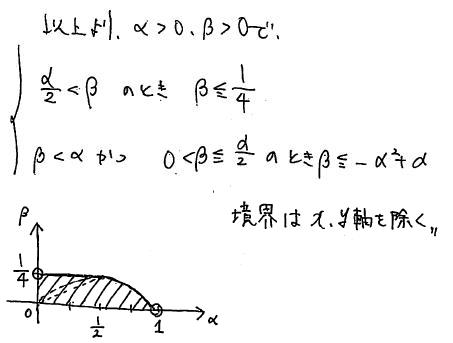 以上より、α>0、β>0で、
α/2<β のとき β≦1/4
β<α かつ 0<β≦α/2 のとき β≦-α²+α
境界は x、y軸を除く〃
β
1/4
0 1/2 1 α